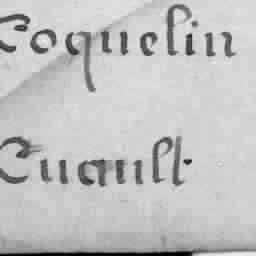 Coquelin
Cuault.